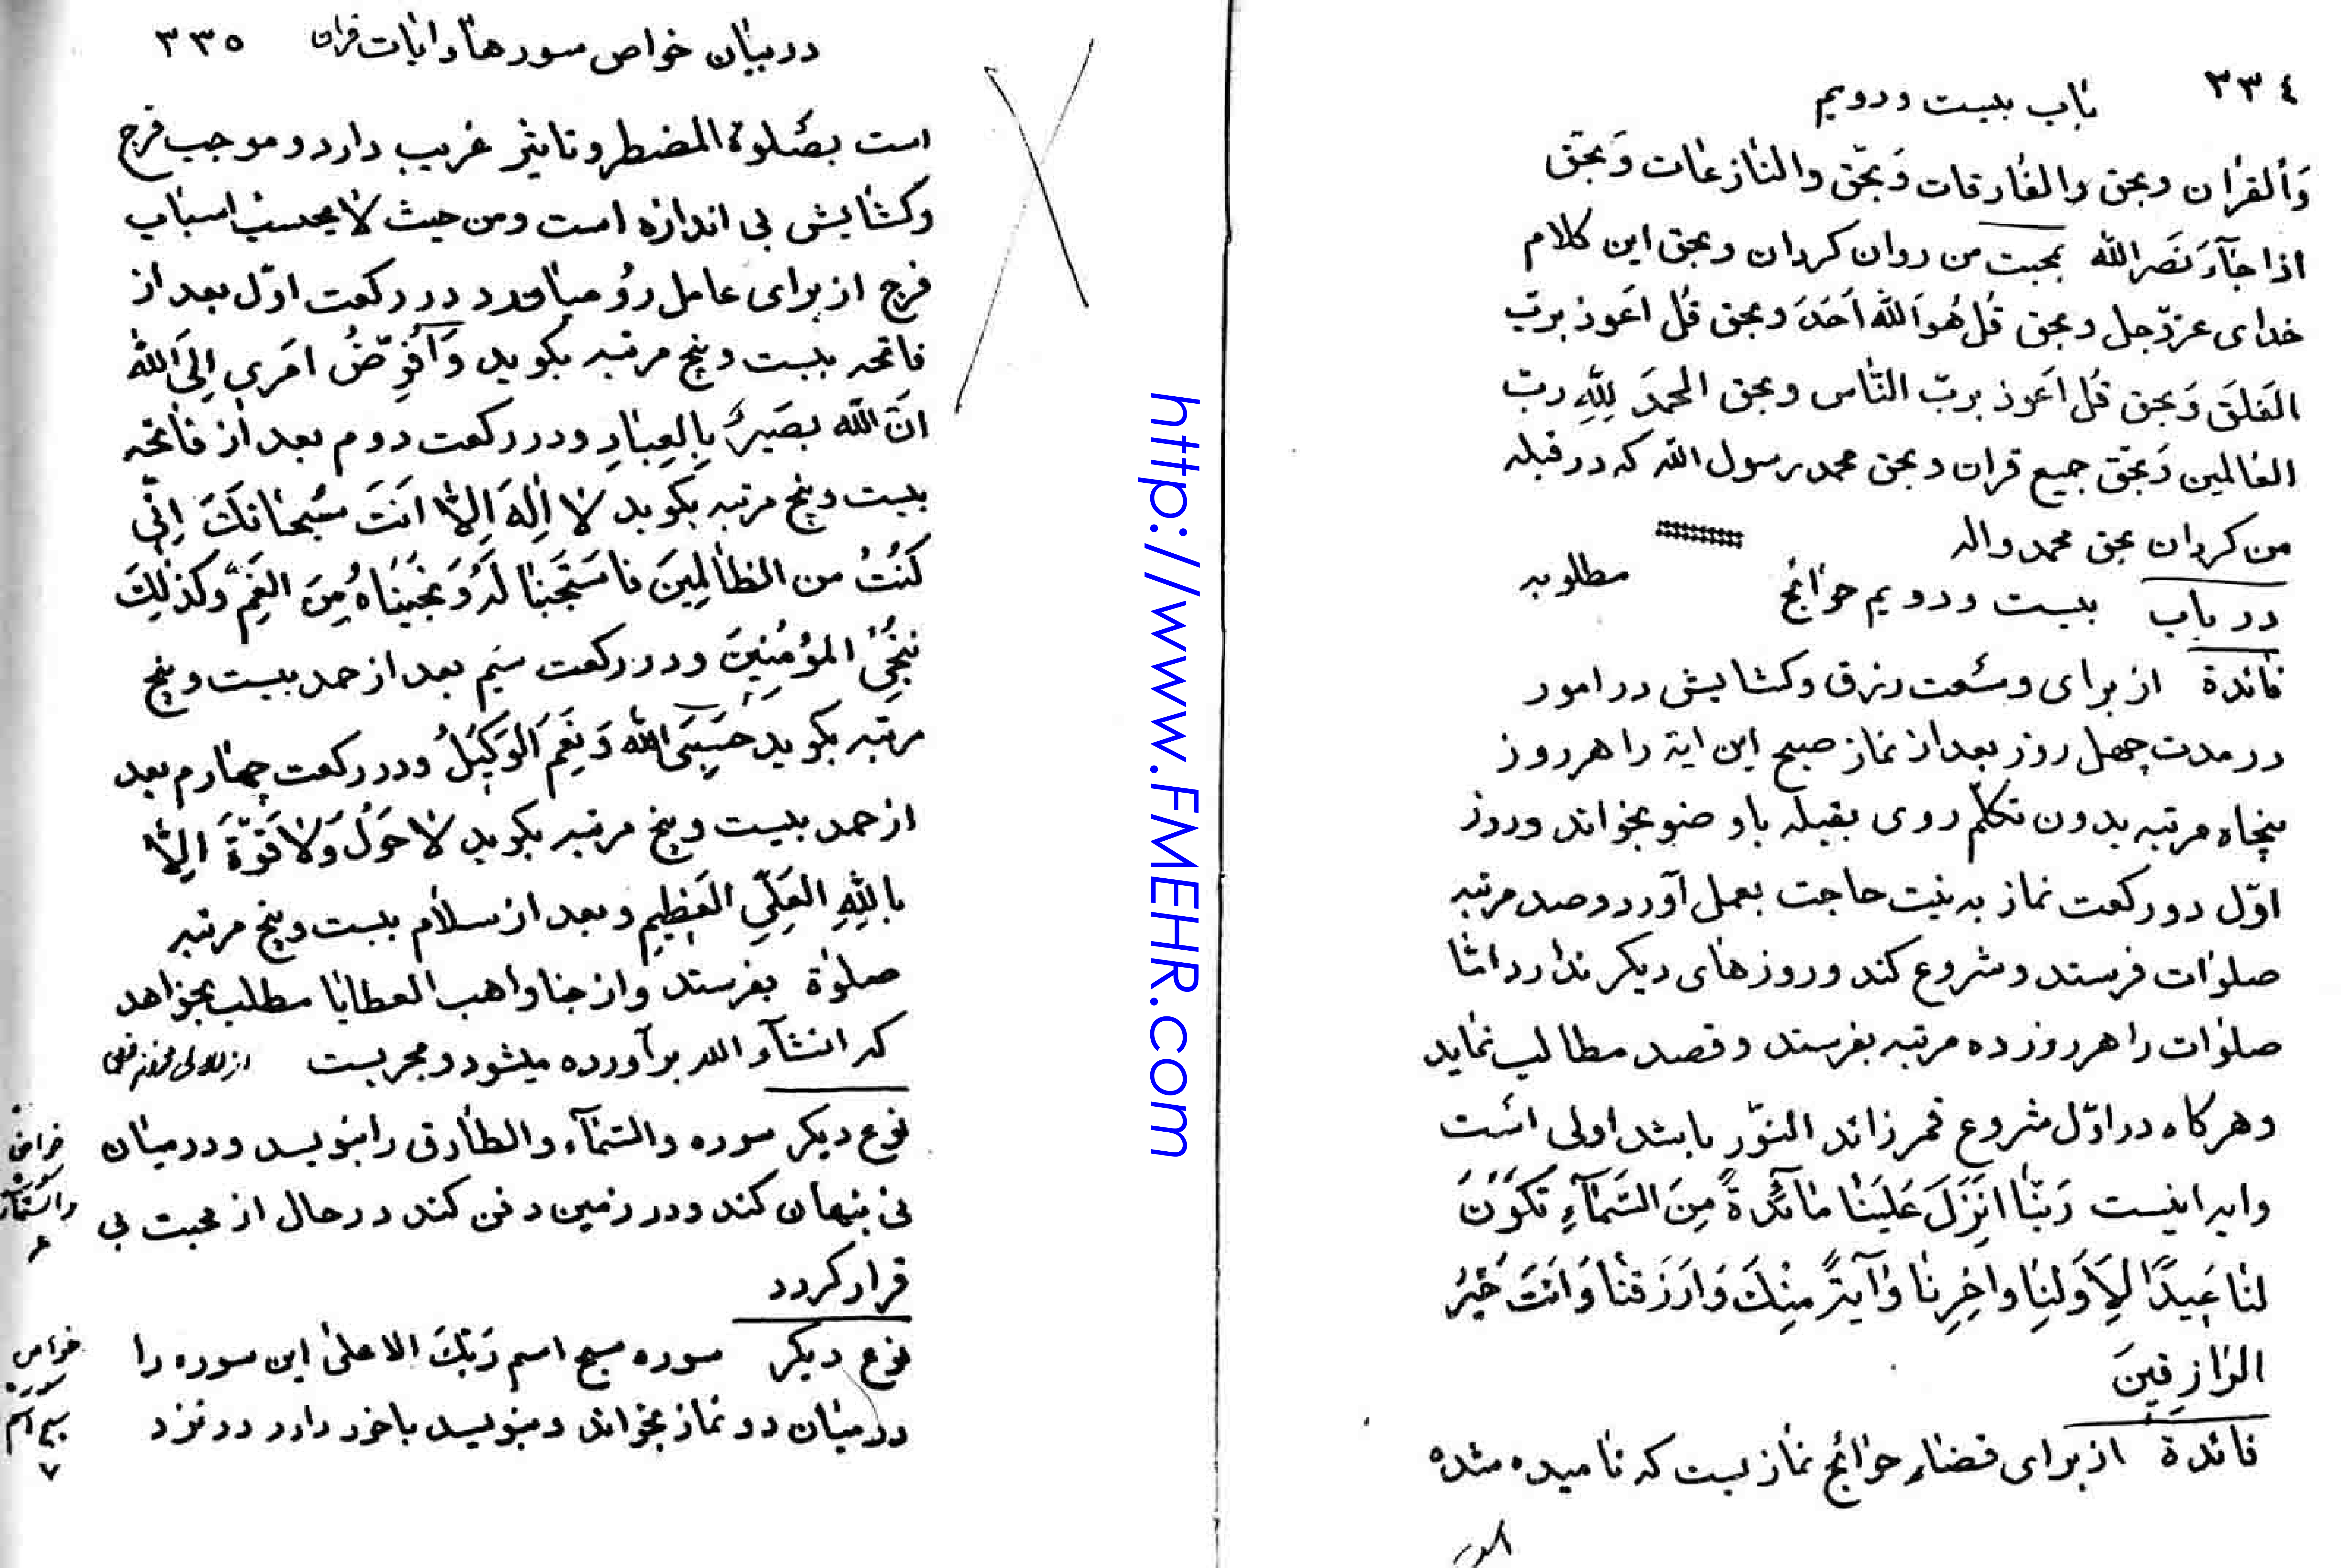 ٣٣٤
باب بیست ودویم
وَالقران وبحق والفارقات وَبحّق والنازعات وَبحّق
اذا جَآءَ نَصَرالله بمحبت من روان کردان وبحق این کلام
خدای عزّوجل وبحق قُل هُوَاللهُ اَحَدَ وبحق قُل اَعوذ بربّ
الفَلَق وَبحق قُل اَعوذ بربّ النّاس وبحق الحمدَ لِلّهِ ربّ
العالمین وَبحّق جمیع قران وبحق محمد رسول الله که در قبله
من کردان بحق محمد واله
در باب بیست ودویم حوائج
مطلوبه
فائدة از برای وسُعت رزق وکشایش در امور
در مدت چهل روز بعد از نماز صبح این ایة را هر روز
پنجاه مرتبه بدون تکلّم روی بقبله با وضو بخواند وروز
اوّل دو رکعت نماز به نیت حاجت بعمل آورد وصد مرتبه
صلوات فرستد وشروع کند وروزهای دیکر ندارد امّا
صلوات را هر روز ده مرتبه بفرستد وقصد مطالب نماید
وهرکاه در اوّل شروع قمر زائد النوّر باشد اولی است
وایه اینست رَبّنا انَزِلَ عَلَینا مآئدةً مِنَ السَّمآءِ تَکوُنَ
لنا عَیدًا لِاَوَلنِا واخِرِنا وَآیَتًر مِنِكَ وَارَزَقنا وَانَتَ خَیُر
الرازِقینَ
فائدة از برای قضاء حوائج نمازیست که نامیده شده
در بیان خواص سورها وایات قران
٣٣٥
است بصَلوة المضطر وتاثیر غریب دارد وموجب فرج
وکشایش بی اندازه است ومن حیث لا یحتسب اسباب
فرج از برای عامل رو میاورد در رکعت اوّل بعد از
فاتحه بیست وپنج مرتبه بکوید وَاُفَوِّضُ امَری اِلیَ اللهُ
انَّ الله بصَیرٌ بِالعِبادِ ودر رکعت دوم بعد از فاتحه
بیست وپنج مرتبه بکوید لا اِلهَ اِلاّ انَتَ سُبحانَكَ اِنّی
کنَتُ من الظالِمینَ فاسَتَجَبنا لَهُ وَنجَیناهُ مِنَ الغَمِ وکذلِكَ
ننُجِی المؤُمِنینَ ودر رکعت سیَم بعد از حمد بیست وپنج
مرتبه بکوید حَسَبِیَ اللهُ وَنِعَمَ الَوکَیلُ ودر رکعت چهارم بعد
از حمد بیست وپنج مرتبه بکوید لا حَوَلُ وَلا قوّةَ اِلاّ
بِاللهِ العَلِیِّ العَظیِمِ وبعد از سلام بیست وپنج مرتبه
صلوة بفرستد واز جنا واهب العطایا مطلب بخواهد
که انشآء الله برآورده میشود ومجربست
نوع دیکر سوره والسّمآء والطارق را بنویسد ودر میان
نی پنهان کند ودر زمین دفن کند در حال از محبت بی
قرار کردد
نوع دیکر سوره سبح اسم رَبّكَ الاعلی این سوره را
در میان دو نماز بخواند وبنویسد با خود دارد در نزد
خواص
سوره
والسّمآء
خواص
سوره
سبح اسم
٧
http://www.FMEHR.com